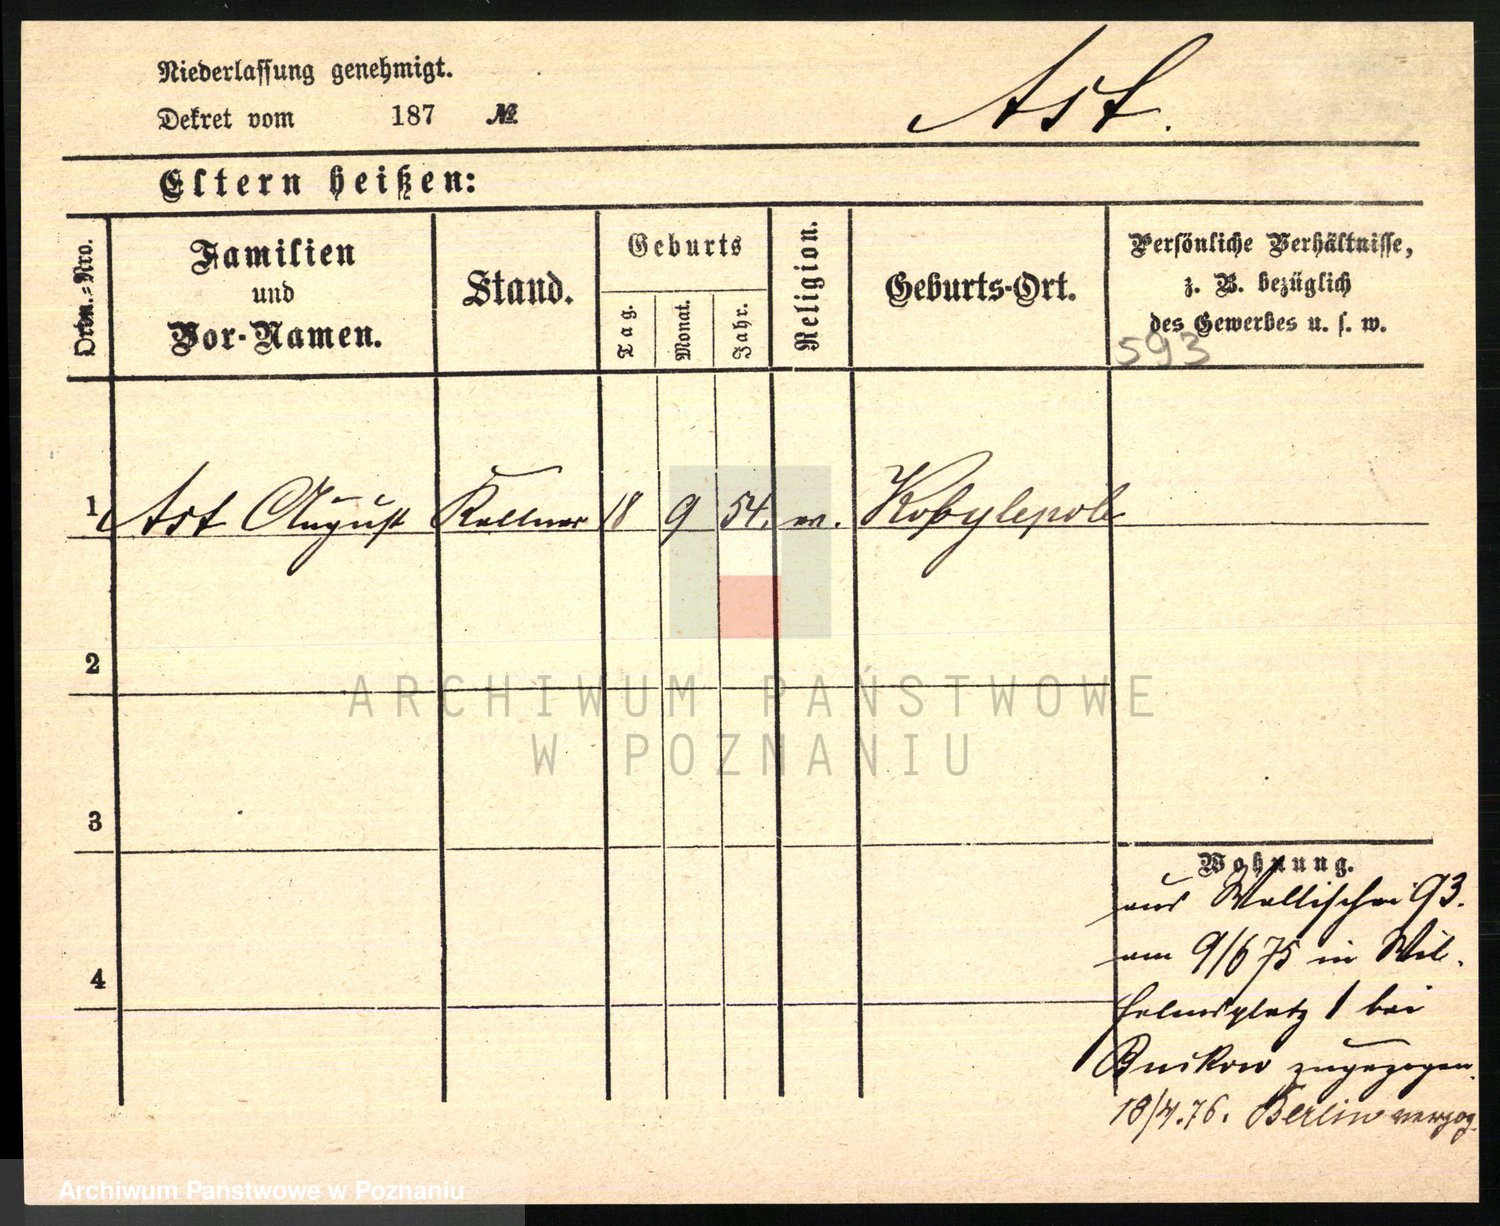 Niederlassung genehmigt.
Dekret vom 187 №
Ast.
Eltern heißen:
Ordn.-Nro.
Familien
und
Vor-Namen.
Stand.
Geburts
Tag.
Monat.
Jahr.
Religion.
Geburts-Ort.
Persönliche Verhältnisse,
z. B. bezüglich
des Gewerbes u. s. w.
593
1 Ast August Kellner 18 9 54. ev. Kobylepole
2
3
4
Wohnung.
aus Wallischei 93.
am 9/6 75 in Wil-
helmsplatz 1 bei
zugezogen.
18/4.76. Berlin verzog.
ARCHIWUM PAŃSTWOWE
W POZNANIU
Archiwum Państwowe w Poznaniu